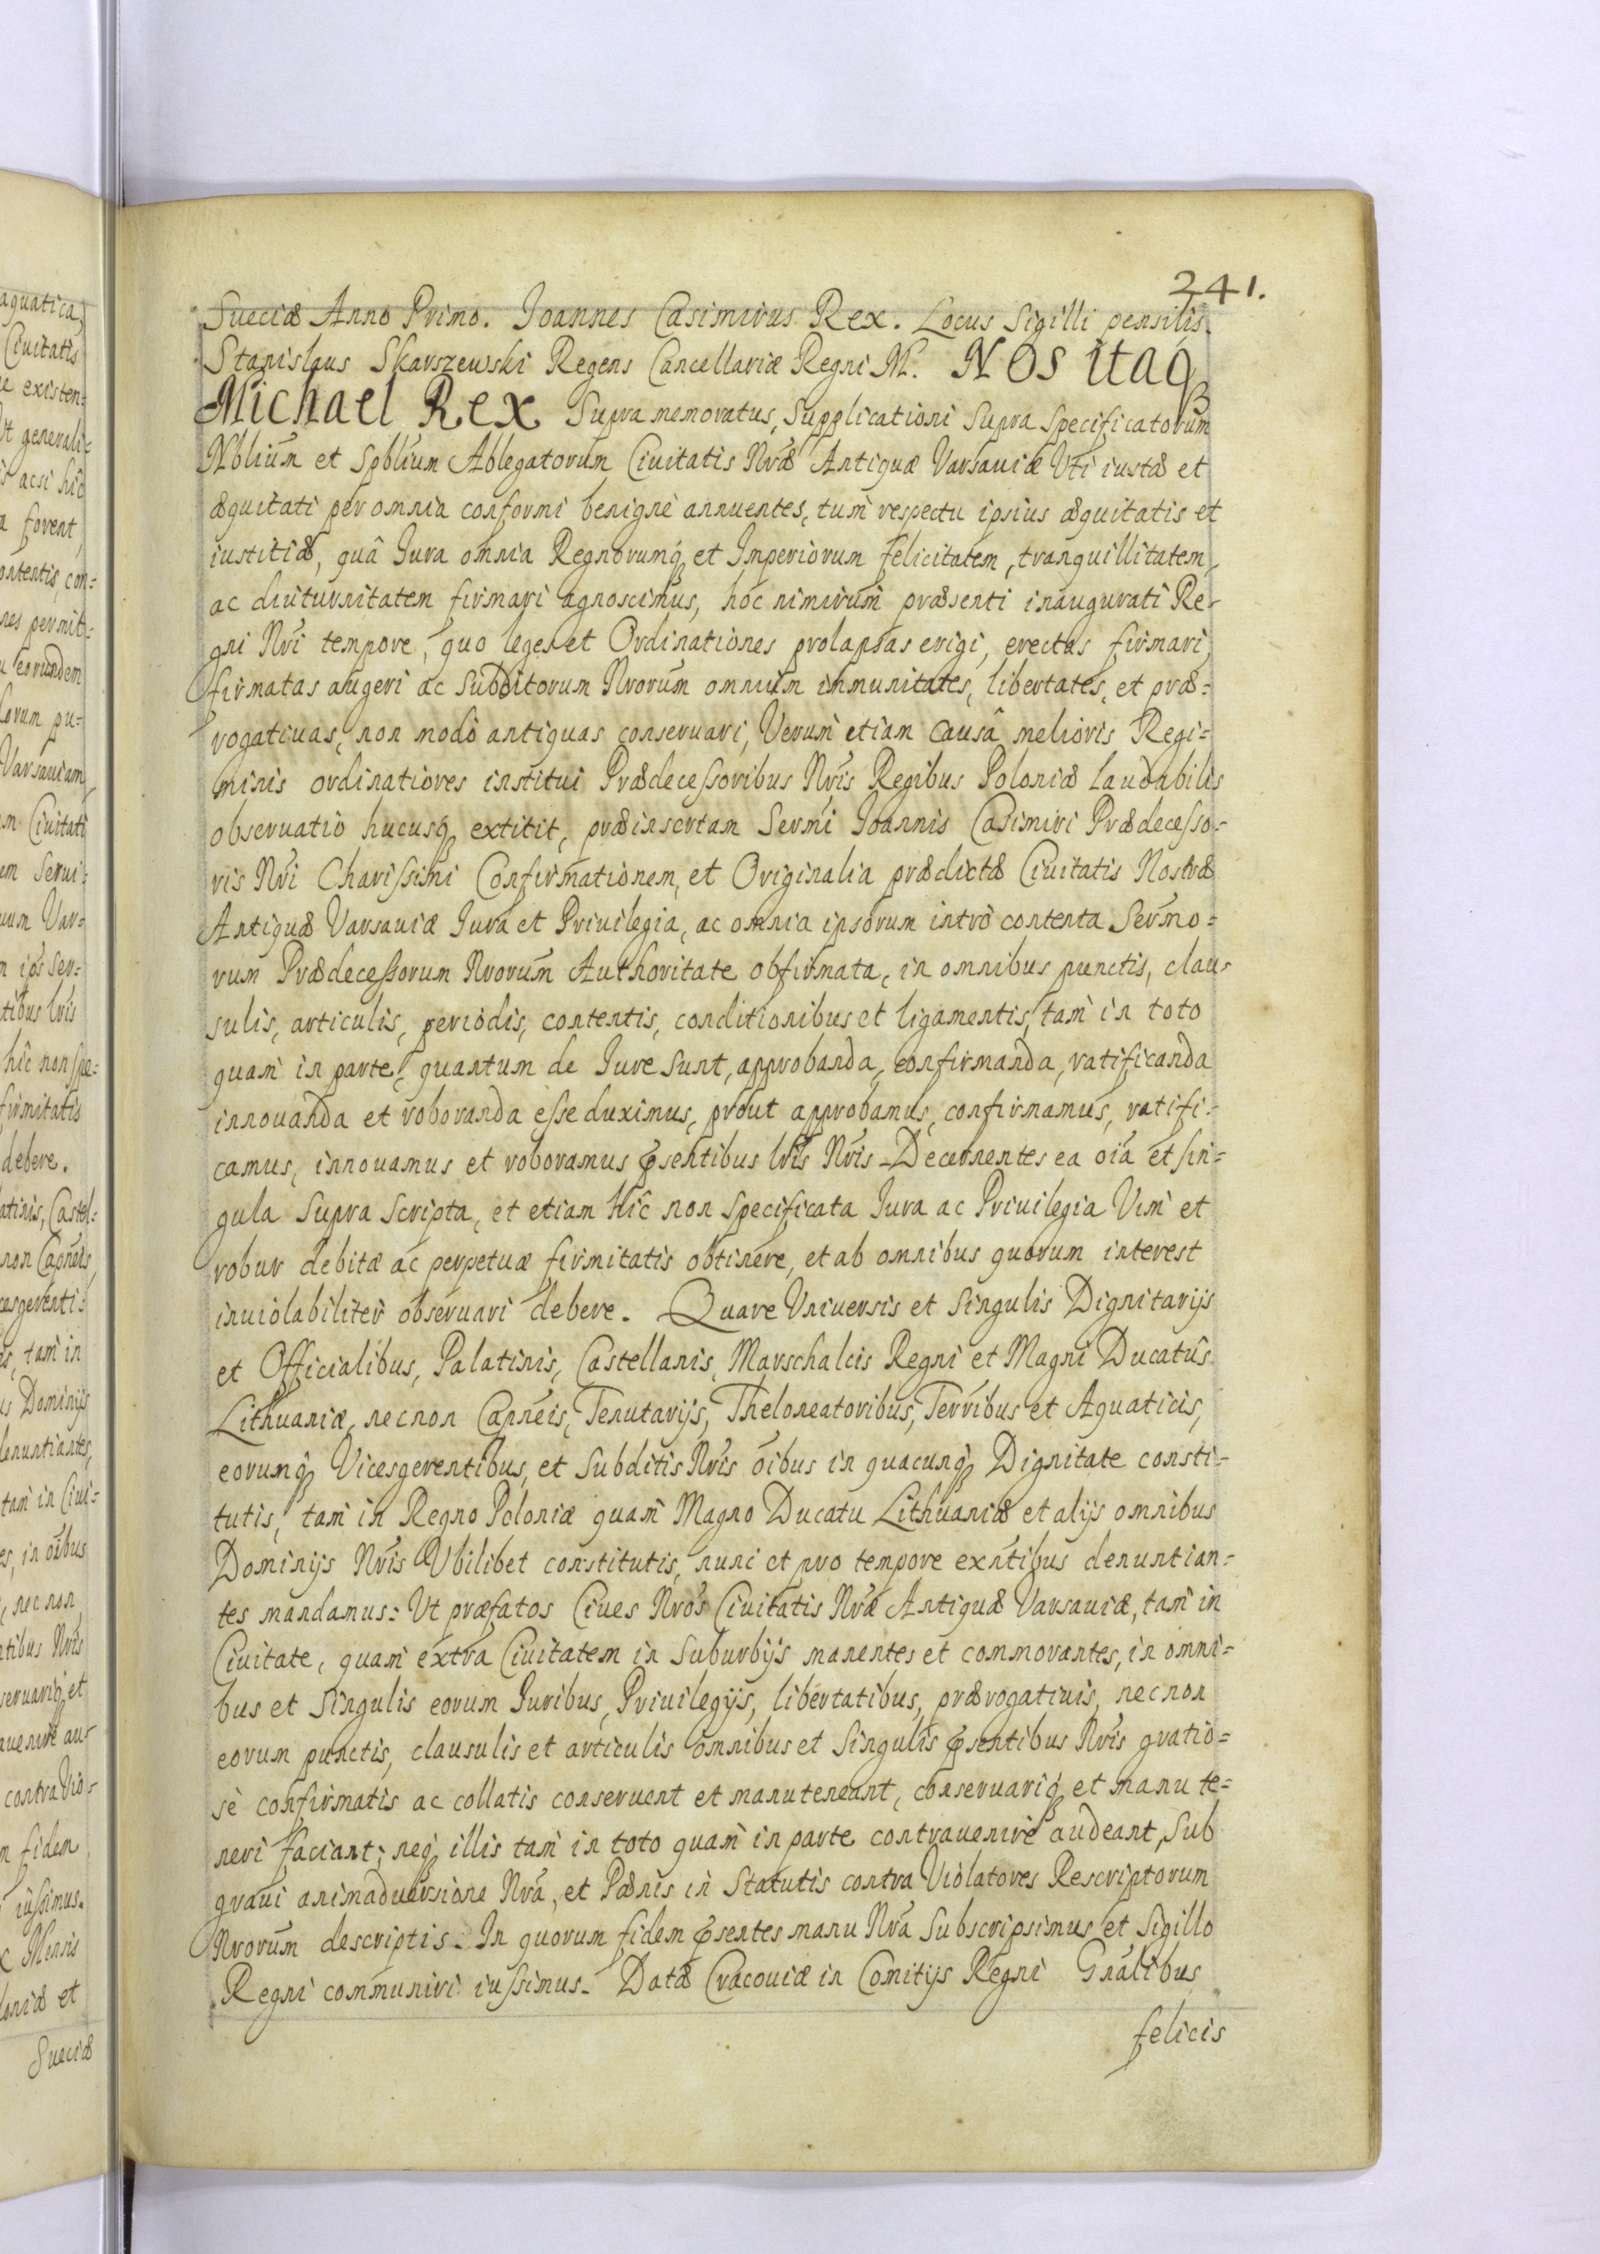 241.
Sueciæ Anno Primo. Joannes Casimirus Rex. Locus Sigilli pensilis.
Stanislaus Skarszewski Regens Cancellariæ Regni M. NOS itaq
Michael Rex Supra memoratus, Supplicationi Supra Specificatorum
Nbliūm et Spbliūm Ablegatorum Ciuitatis Nræ Antiquæ Varsauiæ Uti iustæ et
æquitati per omnia conformi benignè annuentes, tum respectu ipsius æquitatis et
iustitiæ, quâ Jura omnia Regnorumq et Imperiorum felicitatem, tranquillitatem,
ac diuturnitatem firmari agnoscimus, hoc nimirum præsenti inaugurati Re-
gni Nri tempore, quo leges et Ordinationes prolapsas erigi, erectas firmari,
firmatas augeri ac Subditorum Nrorum omnium immunitates, libertates, et præ-
rogatiuas, non modò antiquas conseruari, Verum etiam causâ melioris Regi-
minis ordinatiores institui Prædecessoribus Nris Regibus Poloniæ laudabilis
obseruatio hucusq extitit, præinsertam Sermi Joannis Casimiri Prædecesso-
ris Nri Charissimi Confirmationem, et Originalia prædictæ Ciuitatis Nostræ
Antiquæ Varsauiæ Jura et Priuilegia, ac omnia ipsorum intrò contenta Sermo-
rum Prædecessorum Nrorum Authoritate obfirmata, in omnibus punctis, clau-
sulis, articulis, periodis, contentis, conditionibus et ligamentis, tam in toto
quam in parte, quantum de Jure Sunt, approbanda, confirmanda, ratificanda
innouanda et roboranda esse duximus, prout approbamus, confirmamus, ratifi-
camus, innouamus et roboramus psentibus lris Nris. Decernentes ea oia et sin-
gula Supra Scripta, et etiam Hîc non Specificata Jura ac Priuilegia Vim et
robur debitæ ac perpetuæ firmitatis obtinere, et ab omnibus quorum interest
inuiolabiliter obseruari debere. Quare Uniuersis et Singulis Dignitarijs
et Officialibus, Palatinis, Castellanis, Marschalcis Regni et Magni Ducatûs
Lithuaniæ, necnon Capneis, Tenutarijs, Theloneatoribus, Terribus et Aquaticis,
eorumq Vicesgerentibus, et Subditis Nris oibus in quacunq Dignitate consti-
tutis, tam in Regno Poloniæ quam Magno Ducatu Lithuaniæ et alijs omnibus
Dominijs Nris Ubilibet constitutis, nunc et pro tempore exntibus denuntian-
tes mandamus: Ut præfatos Ciues Nros Ciuitatis Nræ Antiquæ Varsauiæ, tam in
Ciuitate, quam extra Ciuitatem in Suburbijs manentes et commorantes, in omni-
bus et Singulis eorum Juribus, Priuilegijs, libertatibus, prærogatiuis, necnon
eorum punctis, clausulis et articulis omnibus et Singulis psentibus Nris gratio-
sè confirmatis ac collatis conseruent et manuteneant, conseruariq et manute-
neri faciant; neq illis tam in toto quam in parte contrauenire audeant, Sub
graui animaduersione Nra, et Pænis in Statutis contra Violatores Rescriptorum
Nrorum descriptis. In quorum fidem psentes manu Nra Subscripsimus et Sigillo
Regni communiri iussimus. Datæ Cracouiæ in Comitijs Regni Gnalibus
felicis